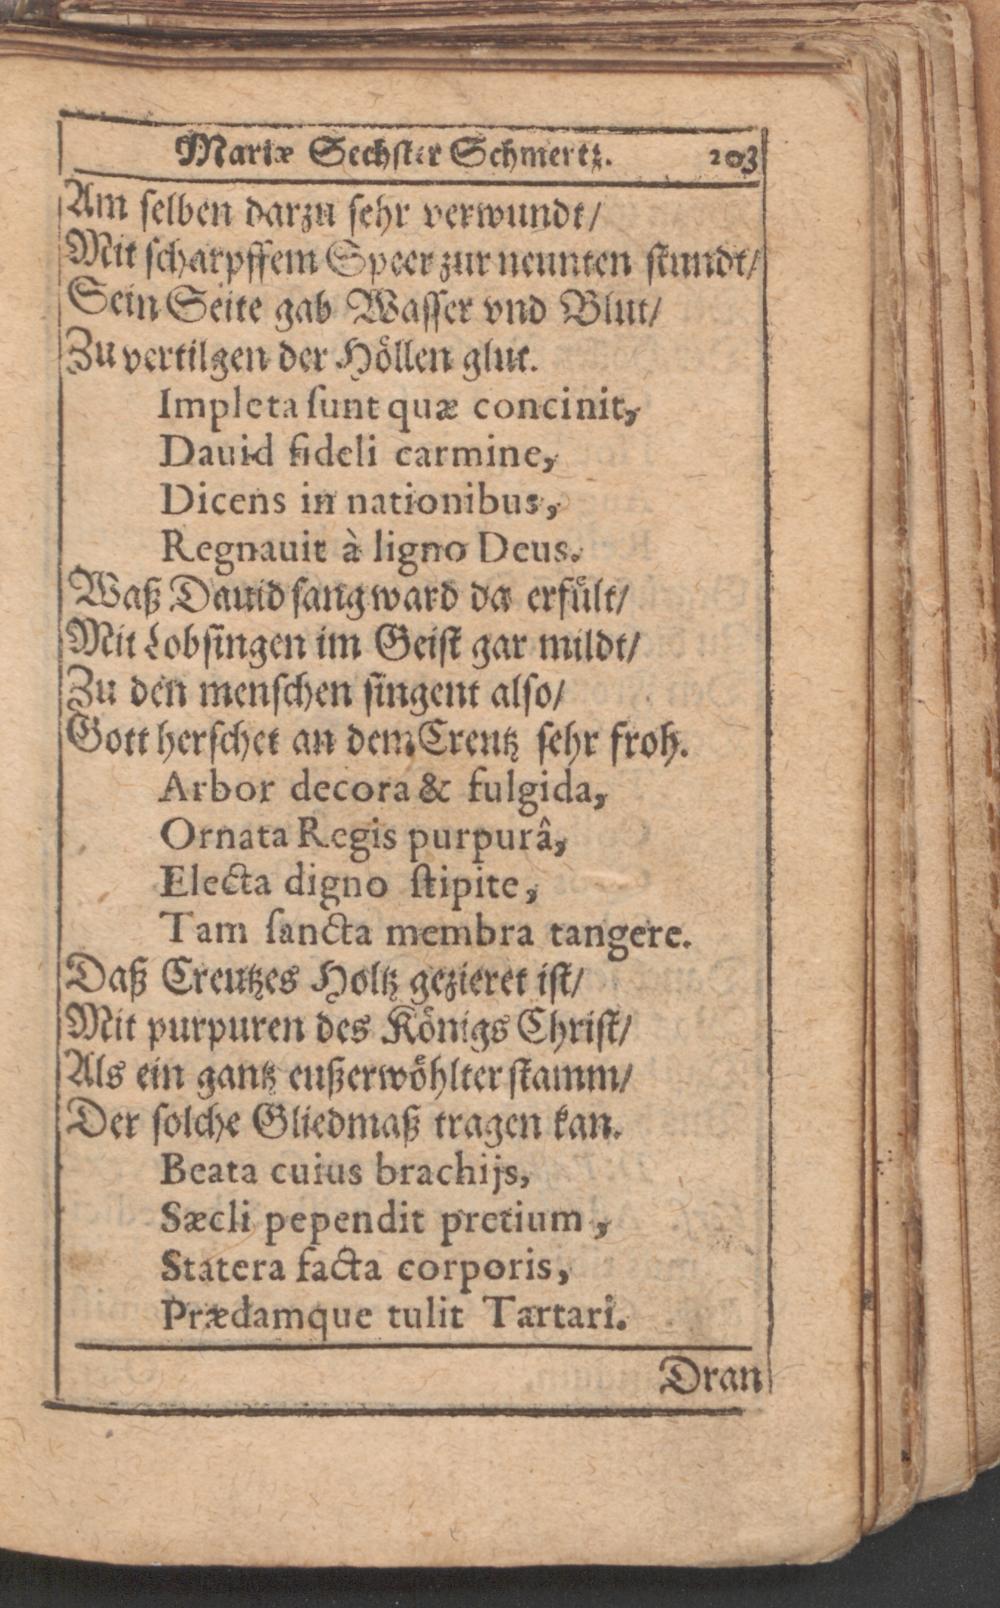 Mariæ Sechster Schmertz. 203
Am selben darzu sehr verwundt/
Mit scharpffem Speer zur neunten stundt/
Sein Seite gab Wasser vnd Blut/
Zu vertilgen der Höllen glut.
Impleta sunt quæ concinit,
Dauid fideli carmine,
Dicens in nationibus,
Regnauit à ligno Deus.
Waß Dauid sang ward da erfült/
Mit Lobsingen im Geist gar mildt/
Zu den menschen singent also/
Gott herschet an dem Creutz sehr froh.
Arbor decora & fulgida,
Ornata Regis purpurâ,
Electa digno stipite,
Tam sancta membra tangere.
Daß Creutzes Holtz gezieret ist/
Mit purpuren des Königs Christ/
Als ein gantz eußerwöhlter stamm/
Der solche Gliedmaß tragen kan.
Beata cuius brachijs,
Sæcli pependit pretium,
Statera facta corporis,
Prædamque tulit Tartari.
Dran